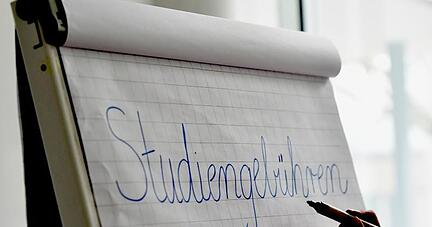 Studiengebühren